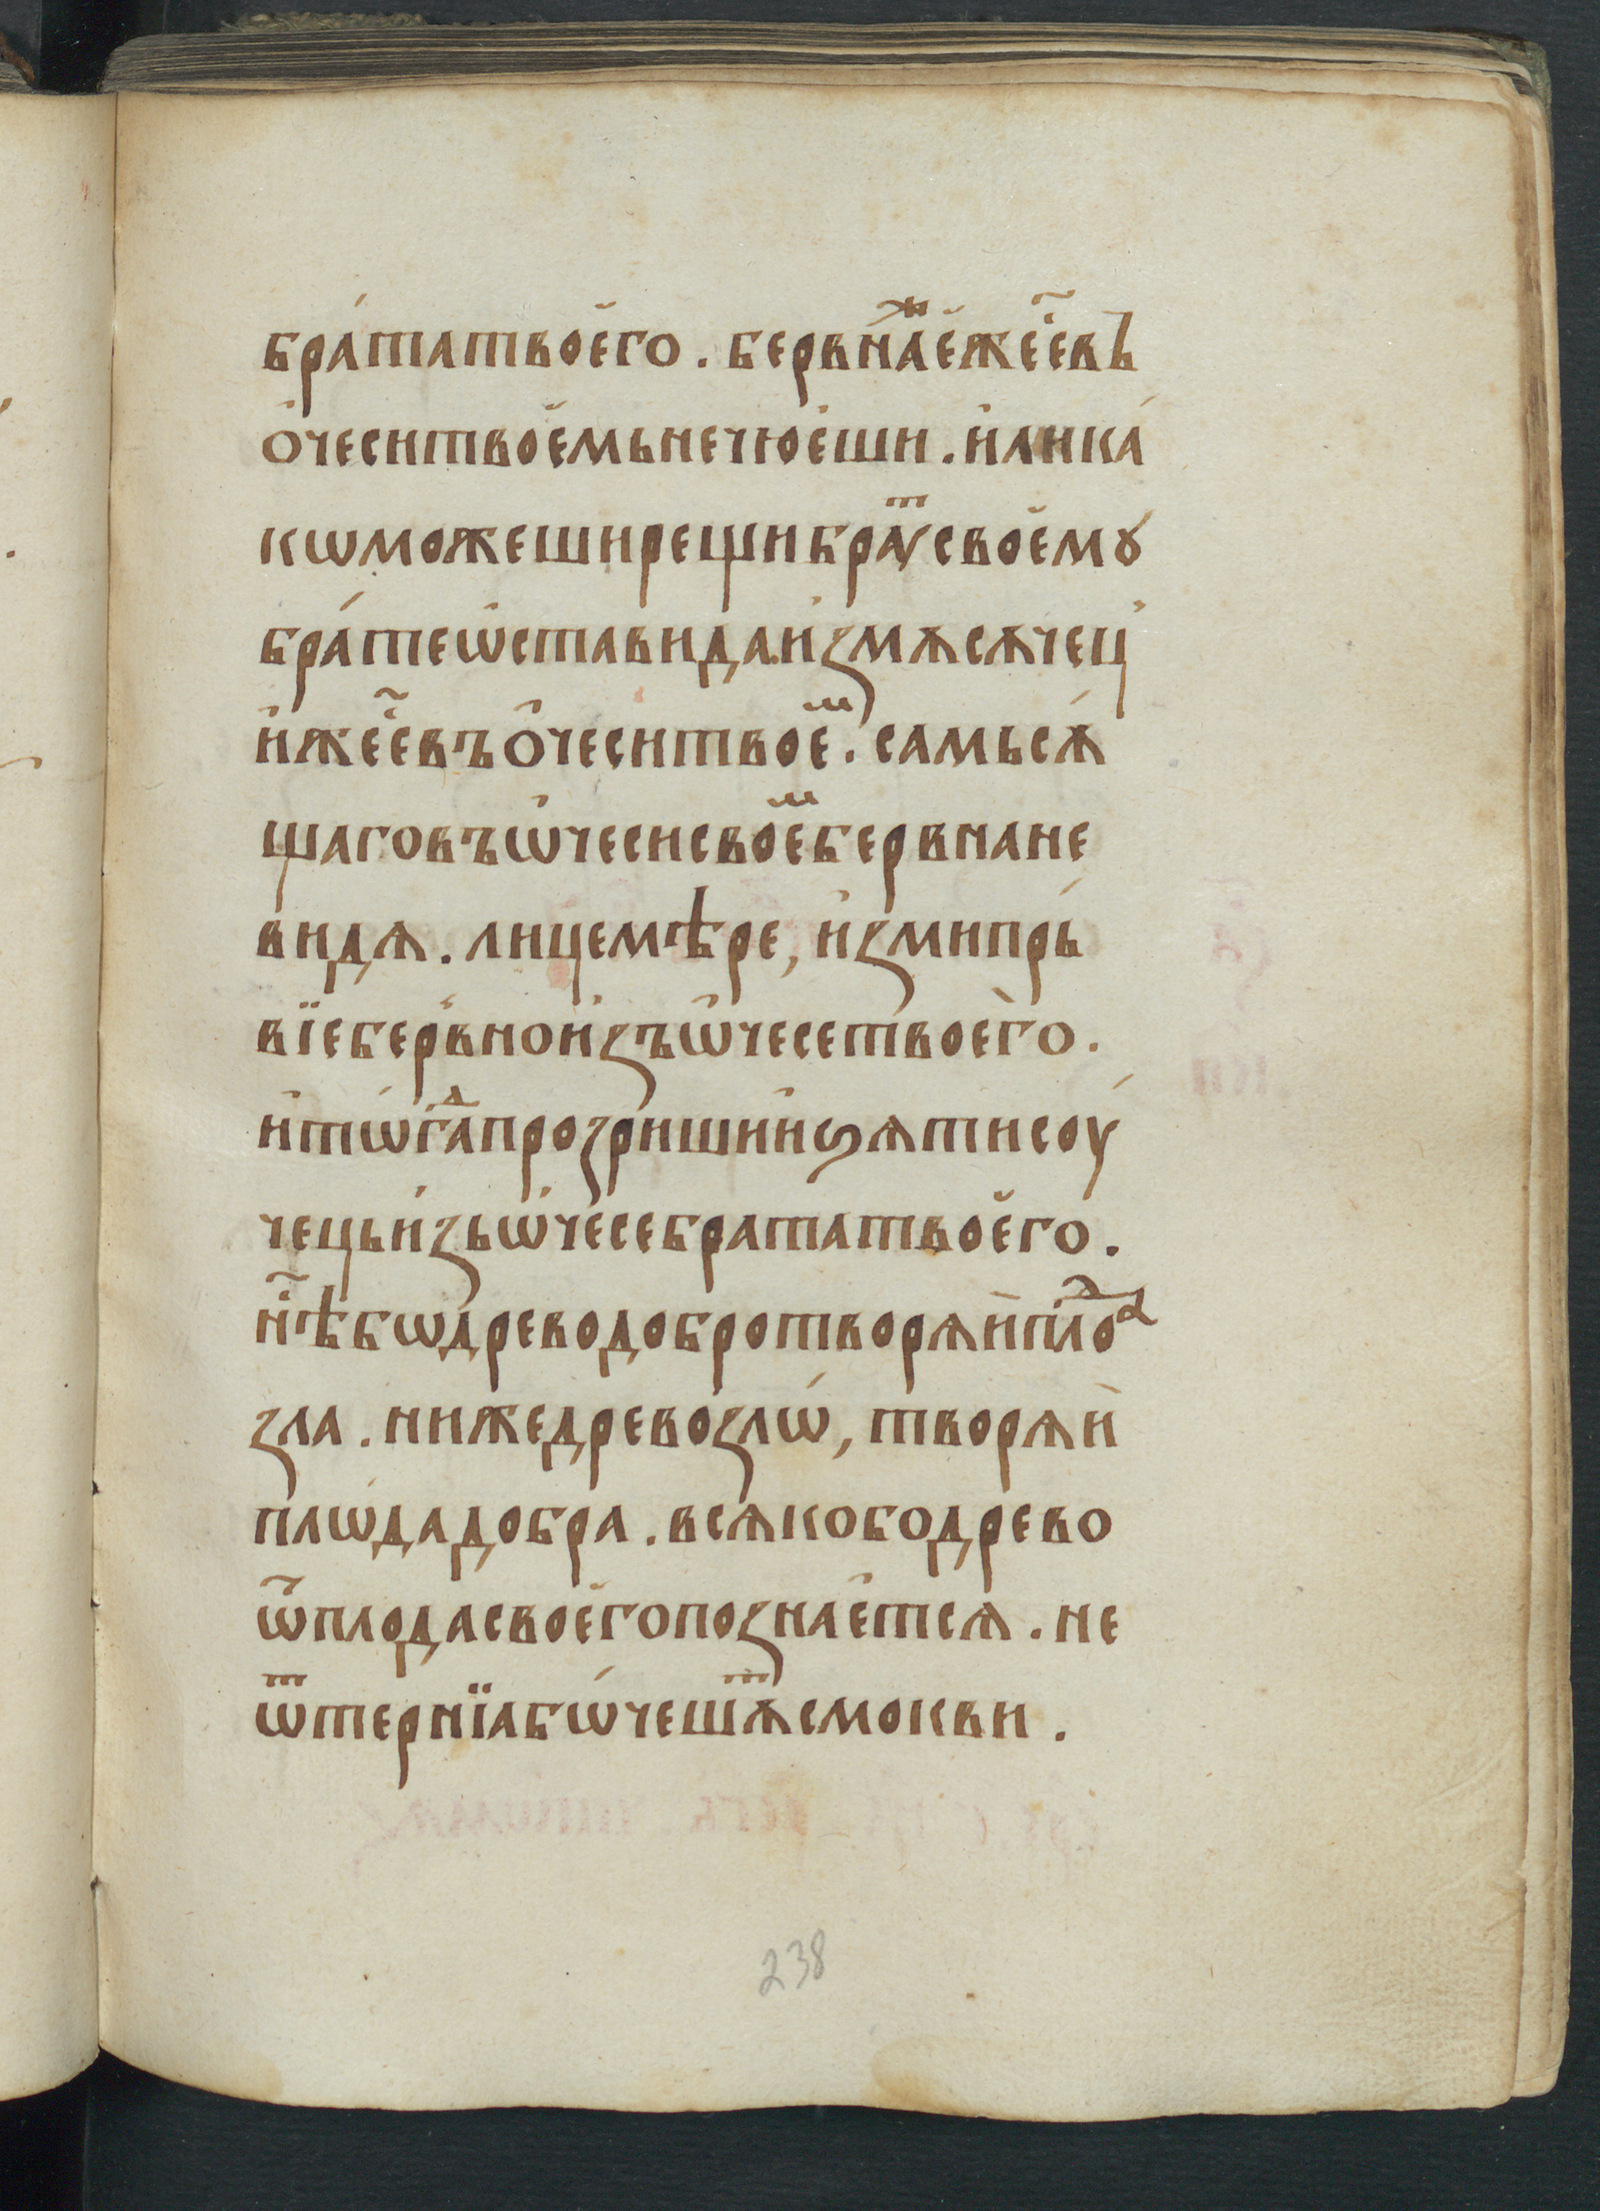 бра́татвоєго . бервнаⷤєжеє҃въ
о҆чеситвоємьнечюєши . и҆лика́
кѡможеширещибраⷮусвоємꙋ
бра́теѡ҆ставидаи҆змѧсѧчец
и҆жеє҃въо҆чеситвоєⷨ . самьсѧ́
щаговъѡ҆чесисвоєⷨбервнане
видѧ . лицемѣре , и҆змипрь́
вїебервнои҆зъѡ҆чесетвоего .
и҆тѡгⷣапрозришии҆ꙁѧтисоу́
чецьи҆зьѡ҆чесебрататвоєго .
н҃ѣбѡдреводобротворѧи҆плоⷣа
зла . нижедревозлѡ́ , творѧи҆
плѡдадобра . всѧкободрево
ѡ҆плодасвоєгопознаєтсѧ . не
ѿтернїабѡ́чешⷮѧсмокви .
238